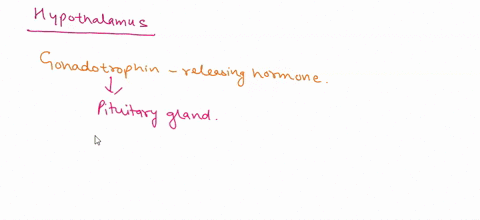 Hypothalamus
Gonadotrophin - releasing hormone.
Pituitary gland.